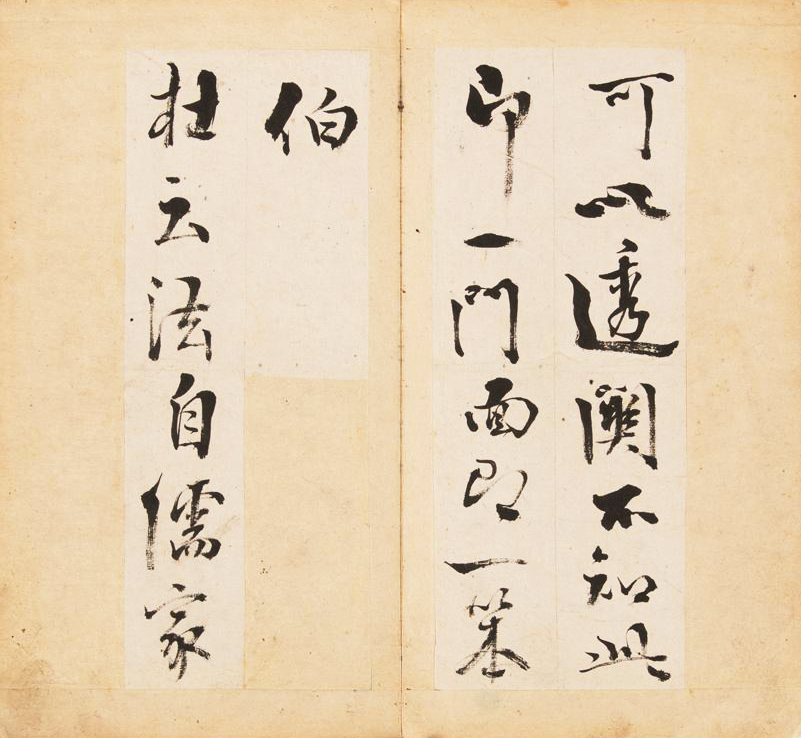 可以透關不知此
即一門面即一笨
伯
杜云法自儒家